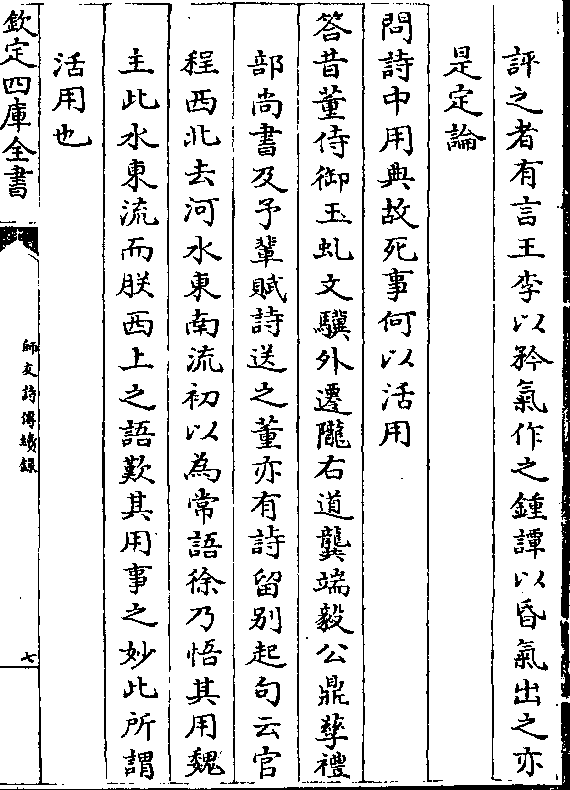 評之者有言王李以矜氣作之鍾譚以昏氣出之亦
是定論
問詩中用典故死事何以活用
答昔董侍御玉虬文驥外遷隴右道龔端毅公鼎孳禮
部尚書及予輩賦詩送之董亦有詩留别起句云官
程西北去河水東南流初以為常語徐乃悟其用魏
主此水東流而朕西上之語歎其用事之妙此所謂
活用也
欽定四庫全書
師友詩傳續錄
七